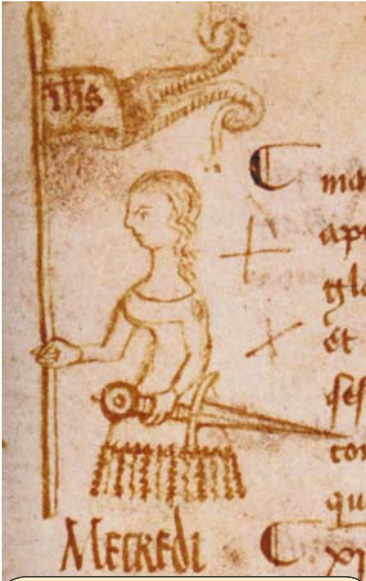 ihs
ma
ap
glo
et
ses
con
qu
MECREDI